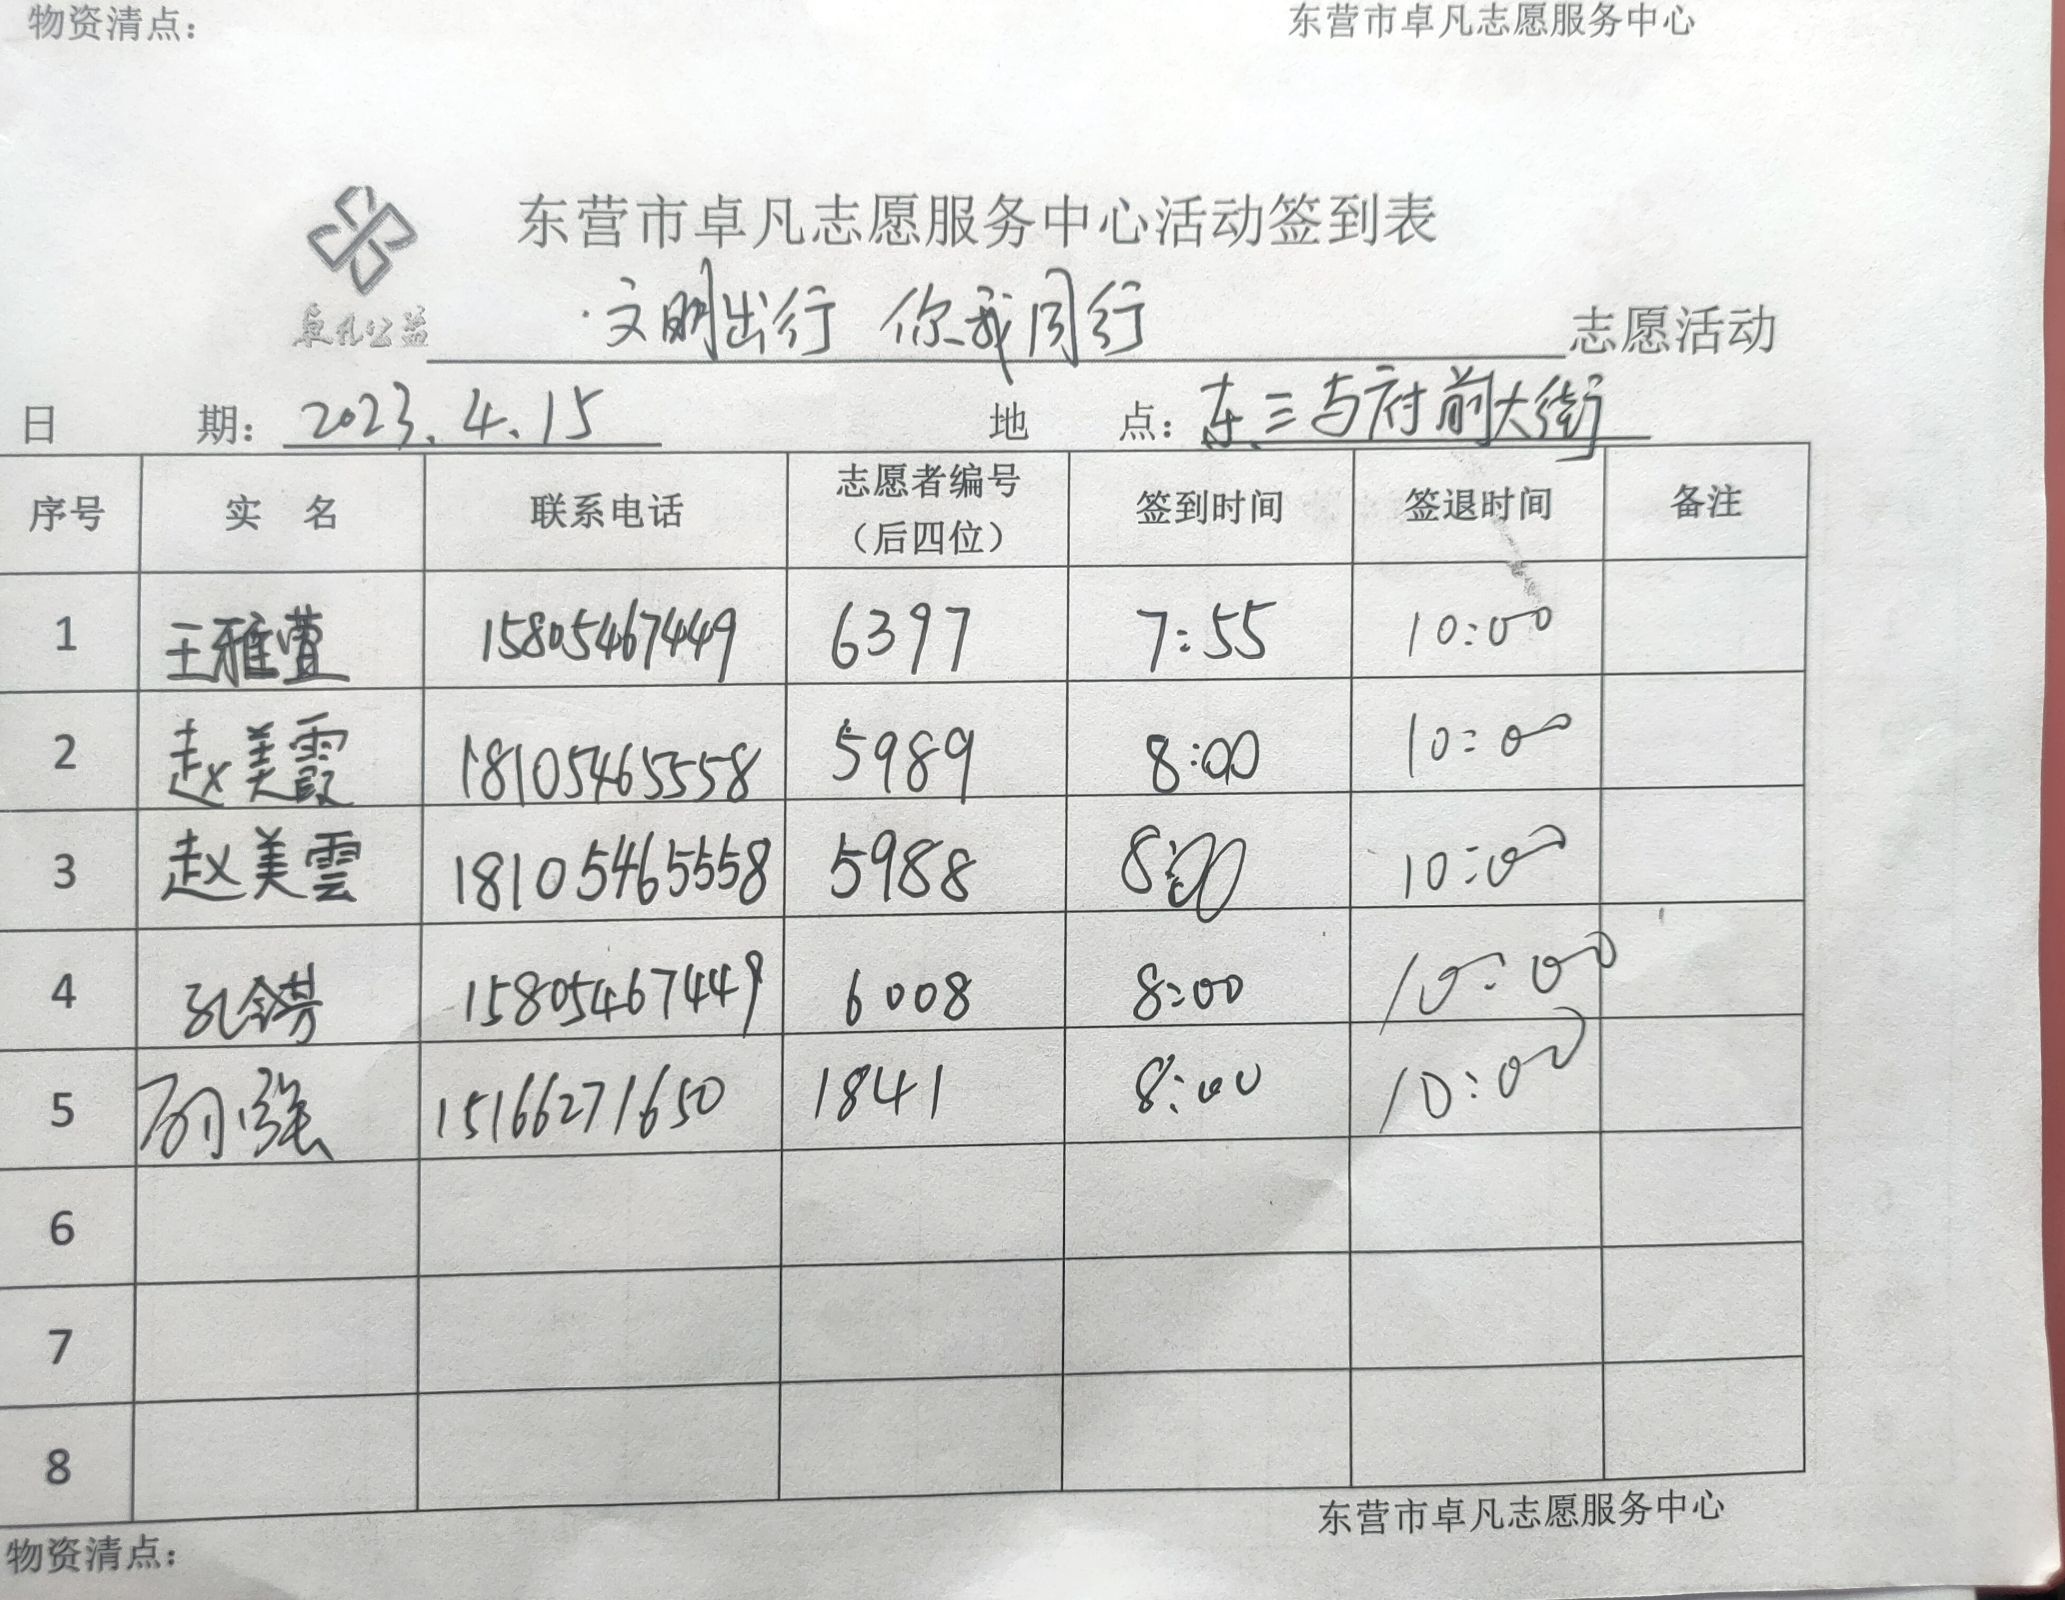 物资清点：
东营市卓凡志愿服务中心
东营市卓凡志愿服务中心活动签到表
卓凡公益
文明出行 你我同行 志愿活动
日 期：2023.4.15 地 点：东三与府前大街
序号 实 名 联系电话 志愿者编号（后四位） 签到时间 签退时间 备注
1 王雅萱 15805467449 6397 7:55 10:00
2 赵美霞 18105465558 5989 8:00 10:00
3 赵美雲 18105465558 5988 8:00 10:00
4 孔 15805467449 6008 8:00 10:00
5 孙强 15166271650 1841 8:00 10:00
6
7
8
东营市卓凡志愿服务中心
物资清点：